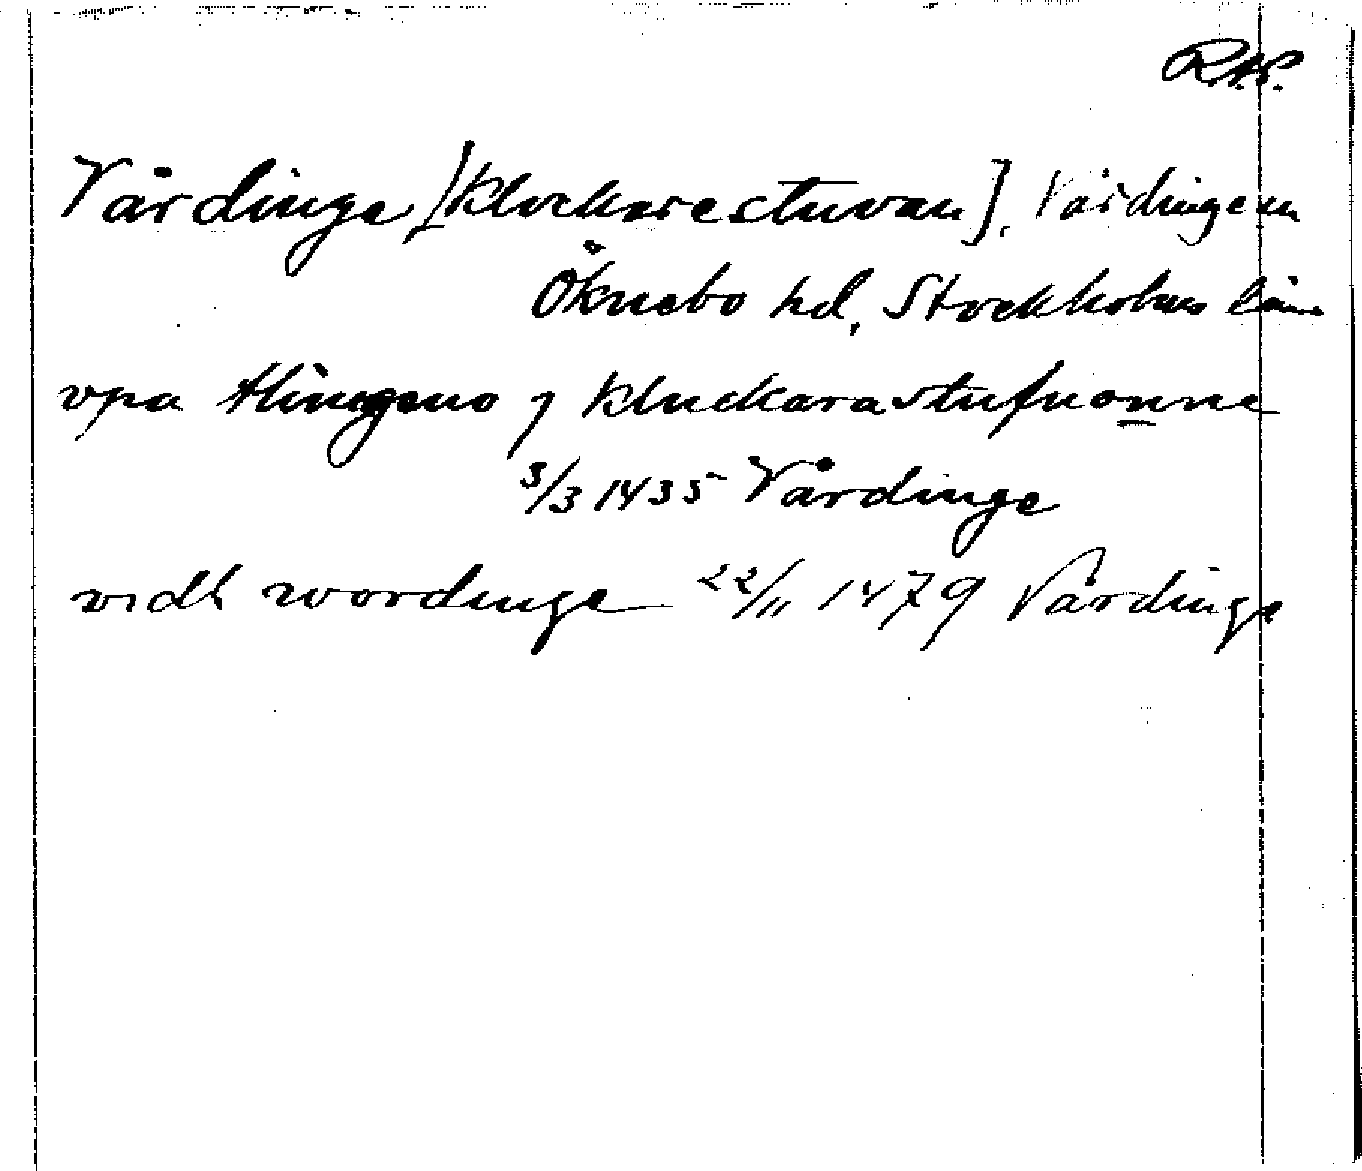 R.A.P.
Vårdinge [Klockarestuvan]. Vårdinge sn
Öknebo hd, Stockholms län
vpa thingeno j kluckarastufuonne
3/3 1435 Vårdinge
vidh wordinge 22/11 1479 Vårdinge